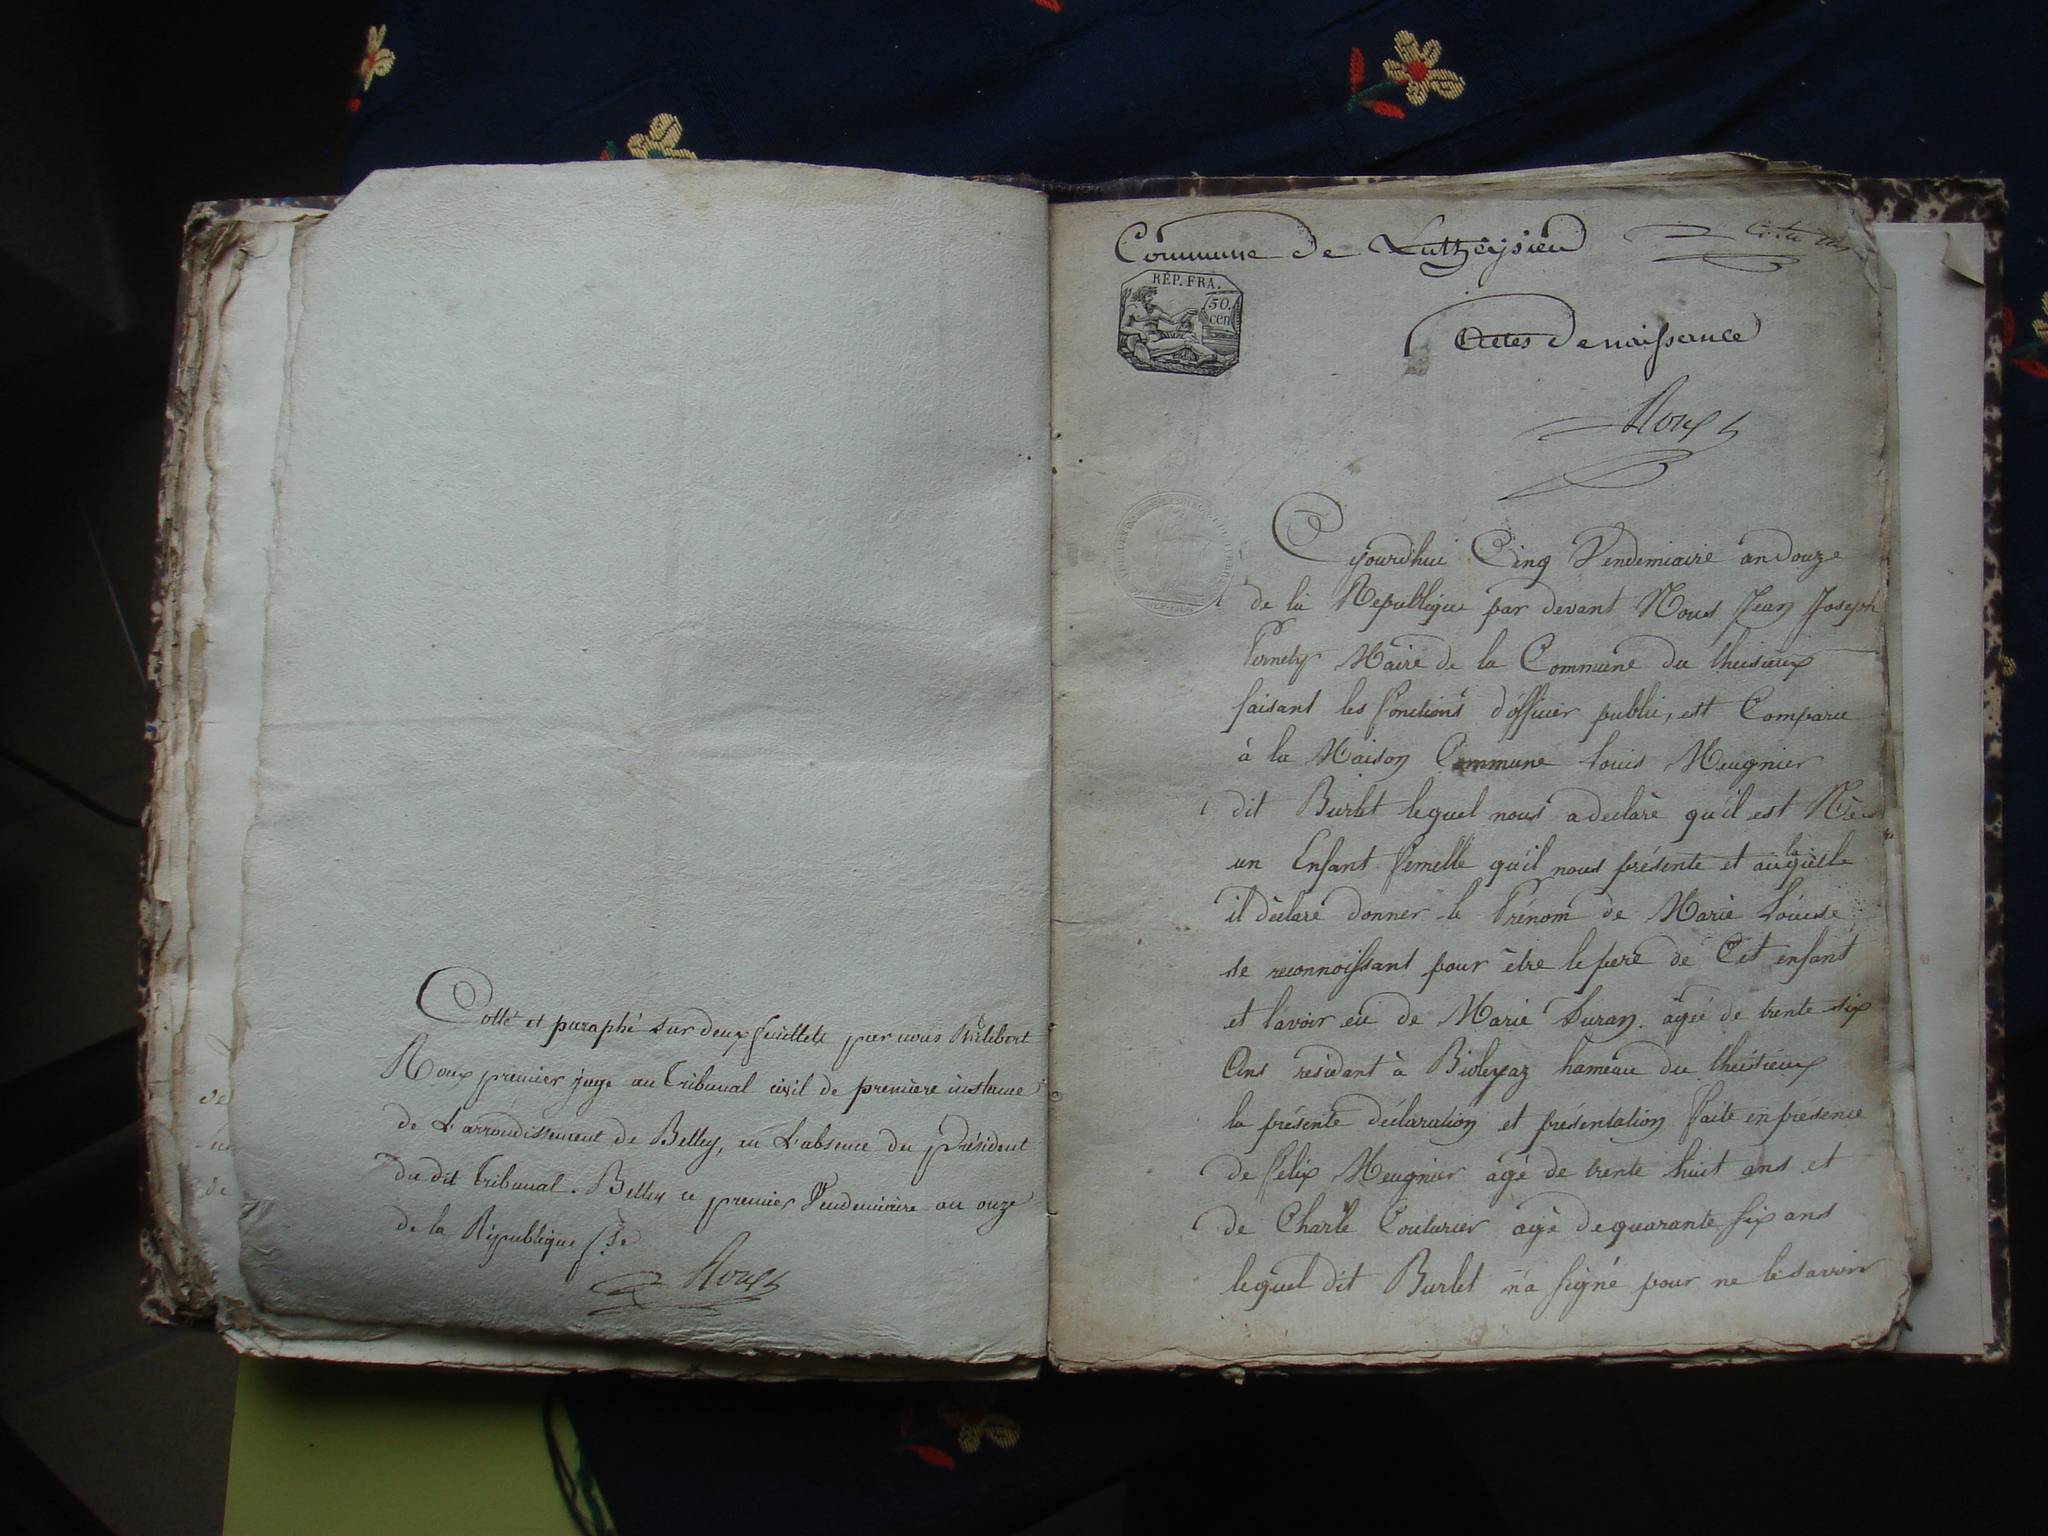 Cotté et paraphé sur deux feuillets par nous
Roux premier juge au tribunal civil de première instance
de L'arrondissement de Belley, en L'absence du président
du dit tribunal. Belley ce premier Vendemiaire an onze
de la République
Roux
Commune de Lutheysieu
REP. FRA.
50.
cen
Actes De naissance
Roux
Cejourdhui Cinq Vendemiaire an Douze
de la Republique par devant Nous Jean Joseph
Pernety Maire de la Commune du thuisieux
faisant les fonctions d'officier public, est Comparu
à la Maison Commune Louis Meugnier
dit Burlet lequel nous a declaré qu'il est Née
un Enfant femelle qu'il nous présente et auquelle
la
il déclare donner le Prénom de Marie Louise
se reconnoissant pour être le pere de Cet enfant
et lavoir eü de Marie Suran agée de trente six
Ans residant à Bioleyaz hameau du thuisieux
la présente déclaration et présentation faite en présence
de felix Meugnier agé de trente huit ans et
de Charle Couturier agé de quarante six ans
lequel dit Burlet n'a signé pour ne le savoir